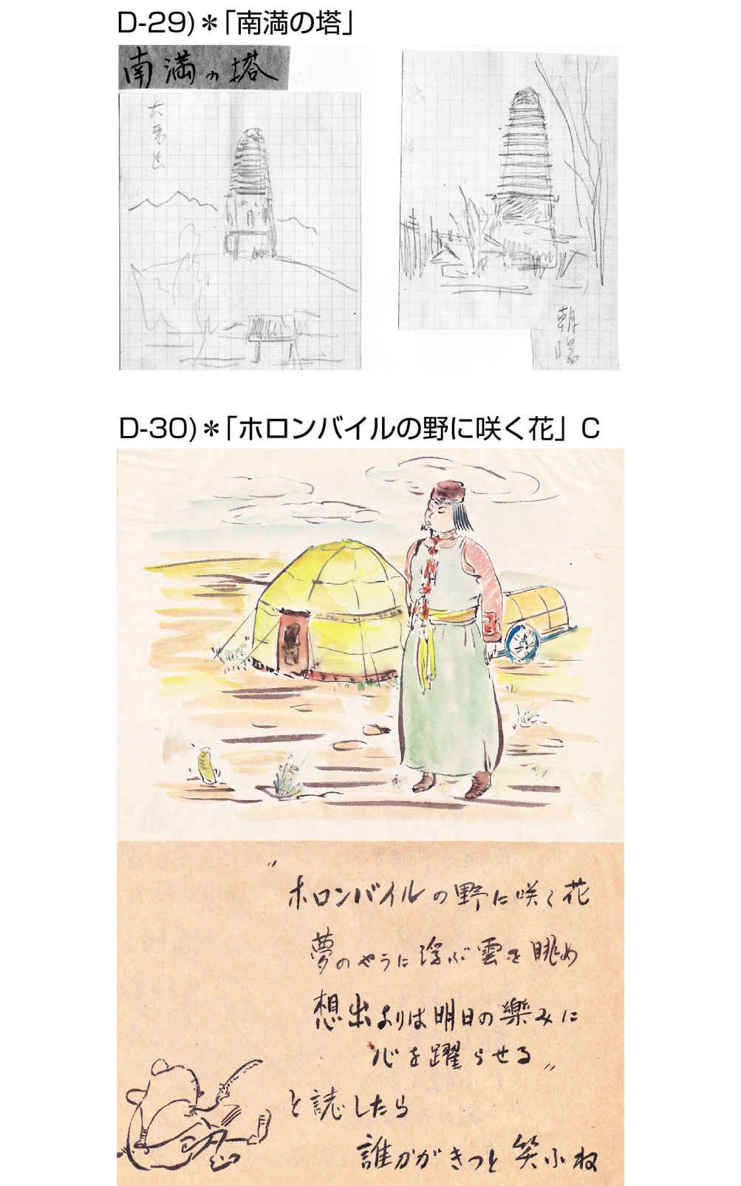 D-29)＊「南満の塔」
南満の塔
朝陽
D-30)＊「ホロンバイルの野に咲く花」 C
"ホロンバイルの野に咲く花
夢のやうに浮ぶ雲を眺め
想出よりは明日の樂みに
心を躍らせる"
と誌したら
誰かがきっと笑ふね